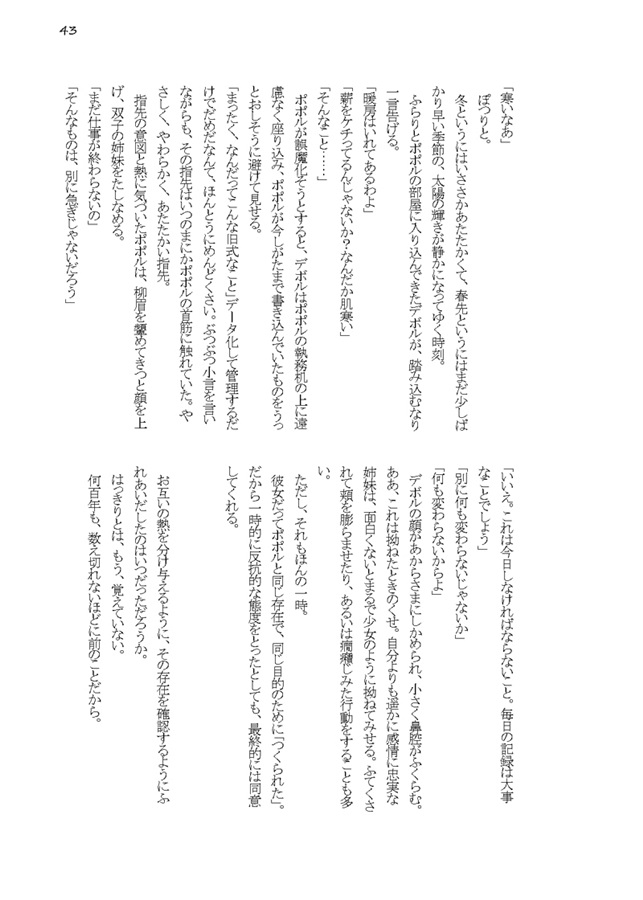 43
「寒いなあ」
ぽつりと。
冬というにはいささかあたたかくて、春先というにはまだ少しば
かり早い季節の、太陽の輝きが静かになってゆく時刻。
ふらりとポポルの部屋に入り込んできたデボルが、踏み込むなり
一言告げる。
「暖房はいれてあるわよ」
「薪をケチってるんじゃないか？なんだか肌寒い」
「そんなこと……」
ポポルが誤魔化そうとすると、デボルはポポルの執務机の上に遠
慮なく座り込み、ポポルが今しがたまで書き込んでいたものをうっ
とおしそうに避けて見せる。
「まったく、なんだってこんな旧式なこと」データ化して管理するだ
けでだめだなんて、ほんとうにめんどくさい。ぶつぶつ小言を言い
ながらも、その指先はいつのまにかポポルの首筋に触れていた。や
さしく、やわらかく、あたたかい指先。
指先の意図と熱に気づいたポポルは、柳眉を顰めてきつと顔を上
げ、双子の姉妹をたしなめる。
「まだ仕事が終わらないの」
「そんなものは、別に急ぎじゃないだろう」
「いいえ。これは今日しなければならないこと。毎日の記録は大事
なことでしょう」
「別に何も変わらないじゃないか」
「何も変わらないからよ」
デボルの顔があからさまにしかめられ、小さく鼻腔がふくらむ。
ああ、これは拗ねたときのくせ。自分よりも遥かに感情に忠実な
姉妹は、面白くないとまるで少女のように拗ねてみせる。ふてくさ
れて頬を膨らませたり、あるいは癇癪じみた行動をすることも多
い。
ただし、それもほんの一時。
彼女だってポポルと同じ存在で、同じ目的のために「つくられた」。
だから一時的に反抗的な態度をとったとしても、最終的には同意
してくれる。
お互いの熱を分け与えるように、その存在を確認するようにふ
れあいだしたのはいつだっただろうか。
はっきりとは、もう、覚えていない。
何百年も、数え切れないほどに前のことだから。